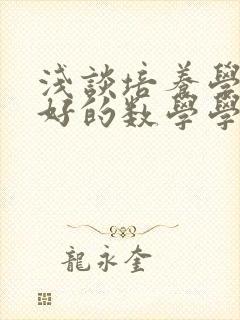 浅談培養學
好的数學學
龍永奎